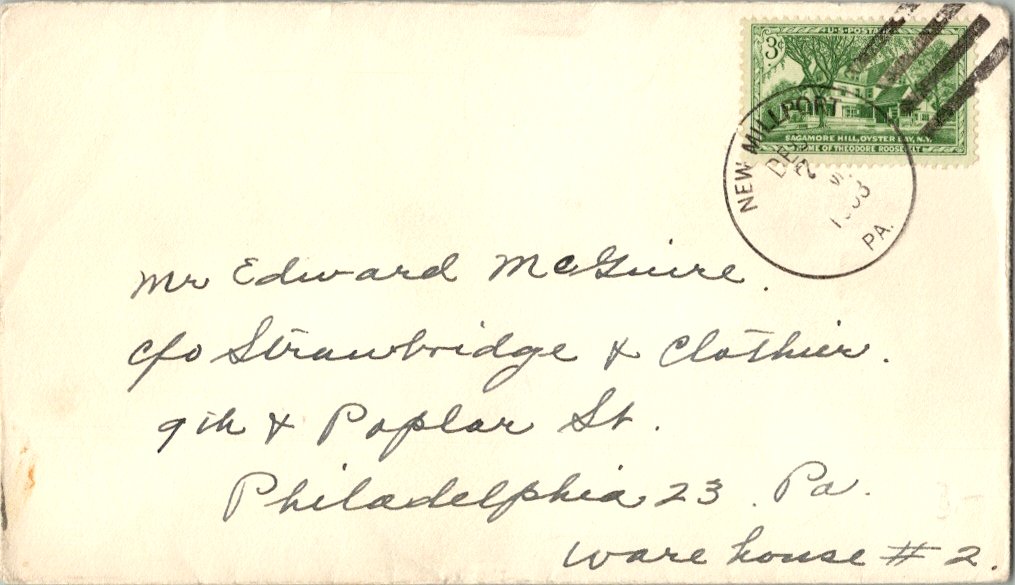 U.S. POSTAGE
3¢
SAGAMORE HILL, OYSTER BAY, N.Y.
HOME OF THEODORE ROOSEVELT
NEW MILLPORT
DEC
2
PA.
Mr Edward McGuire.
c/o Strawbridge & Clothier.
9th & Poplar St.
Philadelphia 23. Pa.
Ware house # 2.